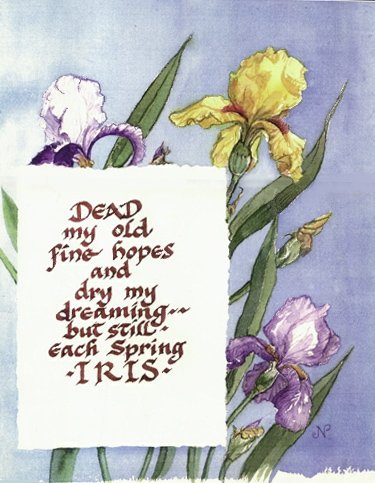 DEAD
my old
fine hopes
and
dry my
dreaming~~
but still·
Each Spring
·IRIS·